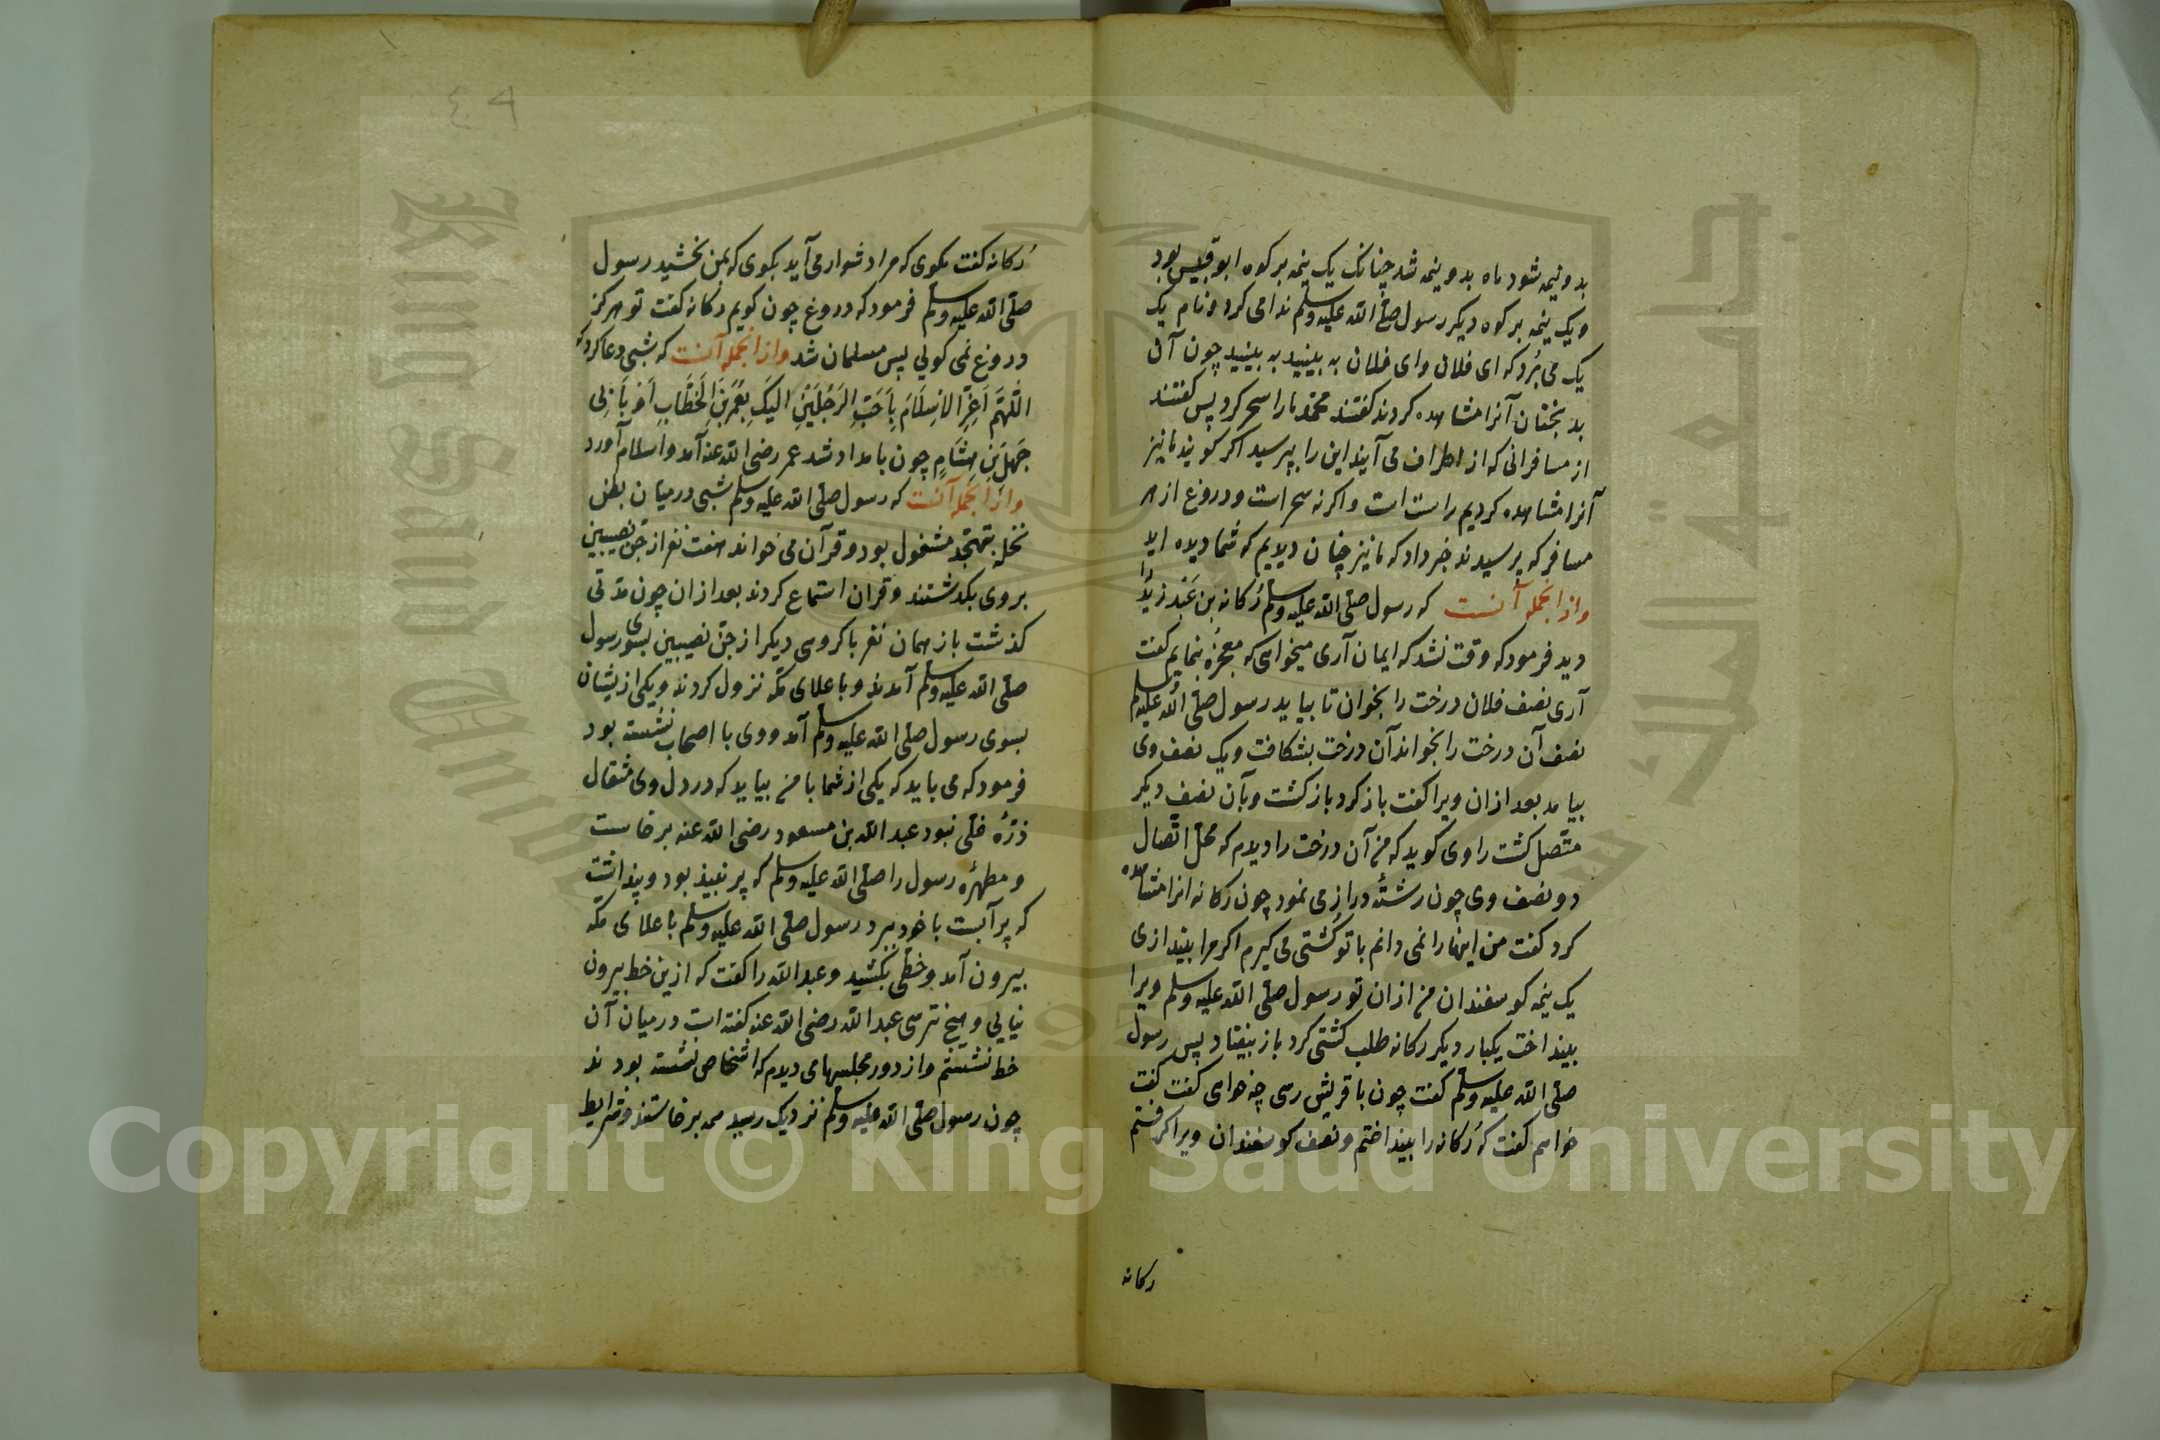 بدو نیمه شود ماه بدو نیمه شد چنانک یک نیمه بر کوه ابو قبیس بود
و یک نیمه بر کوه دیگر رسول صلی الله علیه وسلم ندا می کرد و نام یک
یک می برد که ای فلان و ای فلان به بینید به بینید چون آن
بدبختان آنرا مشاهده کردند گفتند محمد ما را سحر کرد پس گفتند
از مسافرانی که از اطراف می آیند این را بپرسید اگر گویند ما نیز
آنرا مشاهده کردیم راست است و اگر نه سحر است و دروغ از هر
مسافر که پرسیدند خبر داد که ما نیز چنان دیدیم که شما دیده اید
و از انجمله آنست که رسول صلی الله علیه وسلم رُکانه بن عبد یزید را
دید فرمود که وقت نشد که ایمان آری میخواهی که معجزه بنمایم گفت
آری نصف فلان درخت را بخوان تا بیاید رسول صلی الله علیه وسلم
نصف آن درخت را بخواند آن درخت بشکافت و یک نصف وی
بیامد بعد از ان ویرا گفت باز گرد باز گشت و بآن نصف دیگر
متصل گشت راوی گوید که من آن درخت را دیدم که محل اتصال
دو نصف وی چون رشتهٔ دراز می نمود چون رکانه انرا مشاهده
کرد گفت من اینها را نمی دانم با تو کُشتی می گیرم اگر مرا بیندازی
یک نیمه گوسفندان من از ان تو رسول صلی الله علیه وسلم ویرا
بینداخت یکبار دیگر رکانه طلب کشتی کرد باز بیفتاد پس رسول
صلی الله علیه وسلم گفت چون با قریش رسی چه خواهی گفت گفت
خواهم گفت که رُکانه را بینداختم و نصف گوسفندان ویرا گرفتم
رکانه
٤٩
رُکانه گفت مگوی که مرا دشوار می آید بگوی که بمن بخشید رسول
صلی الله علیه وسلم فرمود که دروغ چون گویم رکانه گفت تو هرگز
دروغ نمی گویی پس مسلمان شد و از انجمله آنست که شبی دعا کرد که
اللّٰهُمَّ اَعِزَّ الاِسلَامَ بِاَحَبِّ الرَجُلَیْنِ اِلَیکَ بِعُمَرَ بنِ الخَطَّابِ اَو بِاَبِی
جَهلِ بنِ هِشَامٍ چون بامداد شد عمر رضی الله عنه آمد و اسلام آورد
و از انجمله آنست که رسول صلی الله علیه وسلم شبی در میان بطن
نخله بتهجد مشغول بود و قرآن می خواند هفت نفر از جن نصیبین
بروی بگذشتند و قران استماع کردند بعد از ان چون مدتی
گذشت باز همان نفر با گروهی دیگر از جن نصیبین بسوی رسول
صلی الله علیه وسلم آمدند و باعلای مکه نزول کردند و یکی از یشان
بسوی رسول صلی الله علیه وسلم آمد و وی با اصحاب نشسته بود
فرمود که می باید که یکی از شما با من بیاید که در دل وی مثقال
ذرّهٔ غلی نبود عبد الله بن مسعود رضی الله عنه برخاست
و مطهرهٔ رسول را صلی الله علیه وسلم که پر نبیذ بود و پنداشت
که پر آبست با خود ببرد رسول صلی الله علیه وسلم باعلای مکه
بیرون آمد و خطی بکشید و عبد الله را گفت که ازین خط بیرون
نیایی و هیچ نترسی عبد الله رضی الله عنه گفته است در میان آن
خط نشستم و از دور مجلسهای دیدم که اشخاص نشسته بودند
چون رسول صلی الله علیه وسلم نزدیک رسید همه برخاستند و شرایط
King Saud University
1957
Copyright © King Saud University